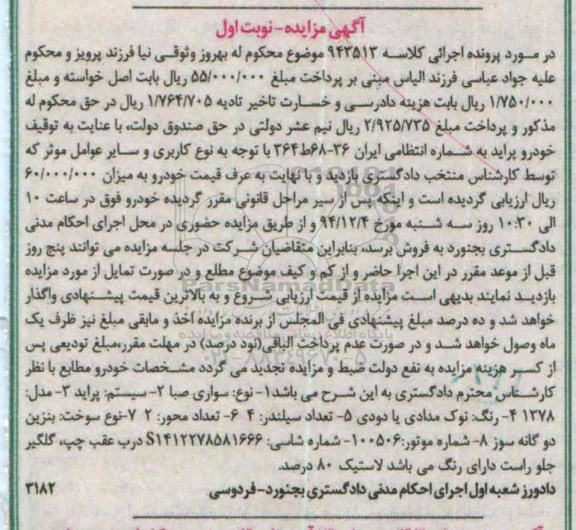 آگهی مزایده-نوبت اول
در مورد پرونده اجرائی کلاسه ۹۴۳۵۱۳ موضوع محکوم له بهروز وثوقی نیا فرزند پرویز و محکوم
علیه جواد عباسی فرزند الیاس مبنی بر پرداخت مبلغ ۵۵/۰۰۰/۰۰۰ ریال بابت اصل خواسته و مبلغ
۱/۷۵۰/۰۰۰ ریال بابت هزینه دادرسی و خسارت تاخیر تادیه ۱/۷۶۴/۷۰۵ ریال در حق محکوم له
مذکور و پرداخت مبلغ ۲/۹۲۵/۷۳۵ ریال نیم عشر دولتی در حق صندوق دولت، با عنایت به توقیف
خودرو پراید به شماره انتظامی ایران ۳۶-۶۸ط۳۶۴ با توجه به نوع کاربری و سایر عوامل موثر که
توسط کارشناس منتخب دادگستری بازدید و با نهایت به عرف قیمت خودرو به میزان ۶۰/۰۰۰/۰۰۰
ریال ارزیابی گردیده است و اینکه پس از سیر مراحل قانونی مقرر گردیده خودرو فوق در ساعت ۱۰
الی ۱۰:۳۰ روز سه شنبه مورخ ۹۴/۱۲/۴ و از طریق مزایده حضوری در محل اجرای احکام مدنی
دادگستری بجنورد به فروش برسد، بنابراین متقاضیان شرکت در جلسه مزایده می توانند پنج روز
قبل از موعد مقرر در این اجرا حاضر و از کم و کیف موضوع مطلع و در صورت تمایل از مورد مزایده
بازدید نمایند بدیهی است مزایده از قیمت ارزیابی شروع و به بالاترین قیمت پیشنهادی واگذار
خواهد شد و ده درصد مبلغ پیشنهادی فی المجلس از برنده مزایده اخذ و مابقی مبلغ نیز ظرف یک
ماه وصول خواهد شد و در صورت عدم پرداخت الباقی (نود درصد) در مهلت مقرر،مبلغ تودیعی پس
از کسر هزینه مزایده به نفع دولت ضبط و مزایده تجدید می گردد مشخصات خودرو مطابق با نظر
کارشناس محترم دادگستری به این شرح می باشد۱- نوع: سواری صبا ۲- سیستم: پراید ۳- مدل:
۱۳۷۸ ۴- رنگ: نوک مدادی یا دودی ۵- تعداد سیلندر: ۴ ۶- تعداد محور: ۲ ۷-نوع سوخت: بنزین
دو گانه سوز ۸- شماره موتور:۱۰۰۵۰۶- شماره شاسی: S۱۴۱۲۲۷۸۵۸۱۶۶۶ درب عقب چپ، گلگیر
جلو راست دارای رنگ می باشد لاستیک ۸۰ درصد.
دادورز شعبه اول اجرای احکام مدنی دادگستری بجنورد-فردوسی ۳۱۸۲
ParsNamadData